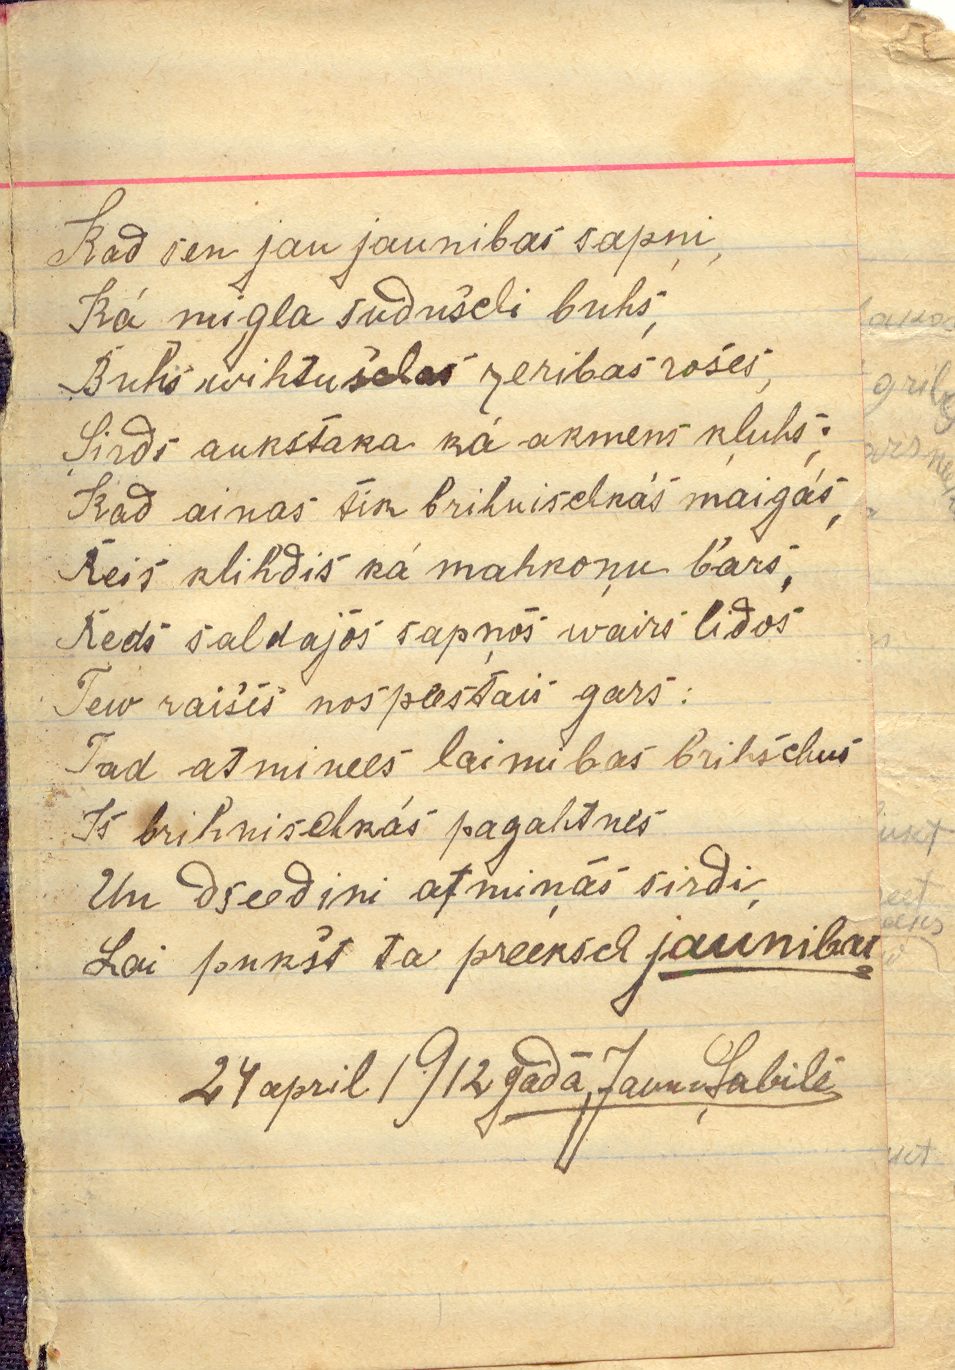 Kad sen jau jaunibas sapņi,
Ká migla sudušeli buhs,
Buhs wihtušelas zeribas roses,
Sirds aukstaka ká akmens kļuhs;
Kad ainas tik brihnischkás maigás,
Reis klihdis ká mahkoņu bars,
Reds saldajós sapņós wairs lidos
Tew raisís nospeestais gars:
Tad atminees laimibas brihschus
Is brihnischkás pagahtnes
Un dseedini atmiņás sirdi,
Lai pukst ta preeksch jaunibu
24 april 1912 gadā, Jaun Sabilē